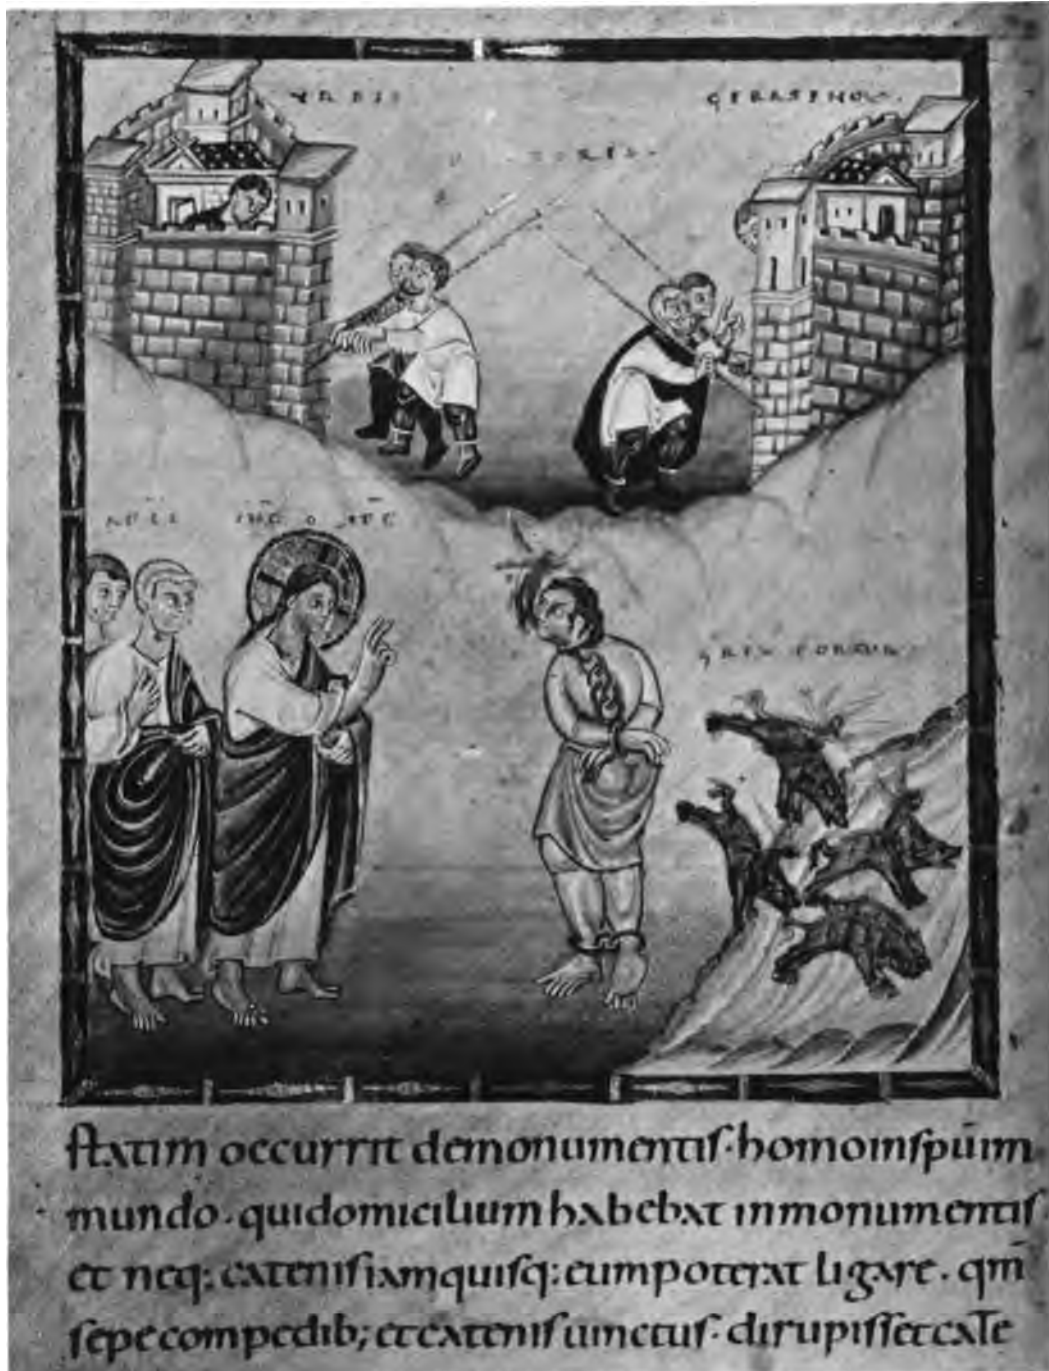 VRBIS
GERASENOR.
APLI
IHC XPC
GREX PORCOR
ſtatim occurrit demonumentiſ·homoinſpūim
mundo·quidomicilium habebat inmonumentiſ
et neq; cateniſiamquiſq; eumpoterat ligare·qm̄
ſepe compedib; etcateniſ uinctuſ·dirupiſſetcate